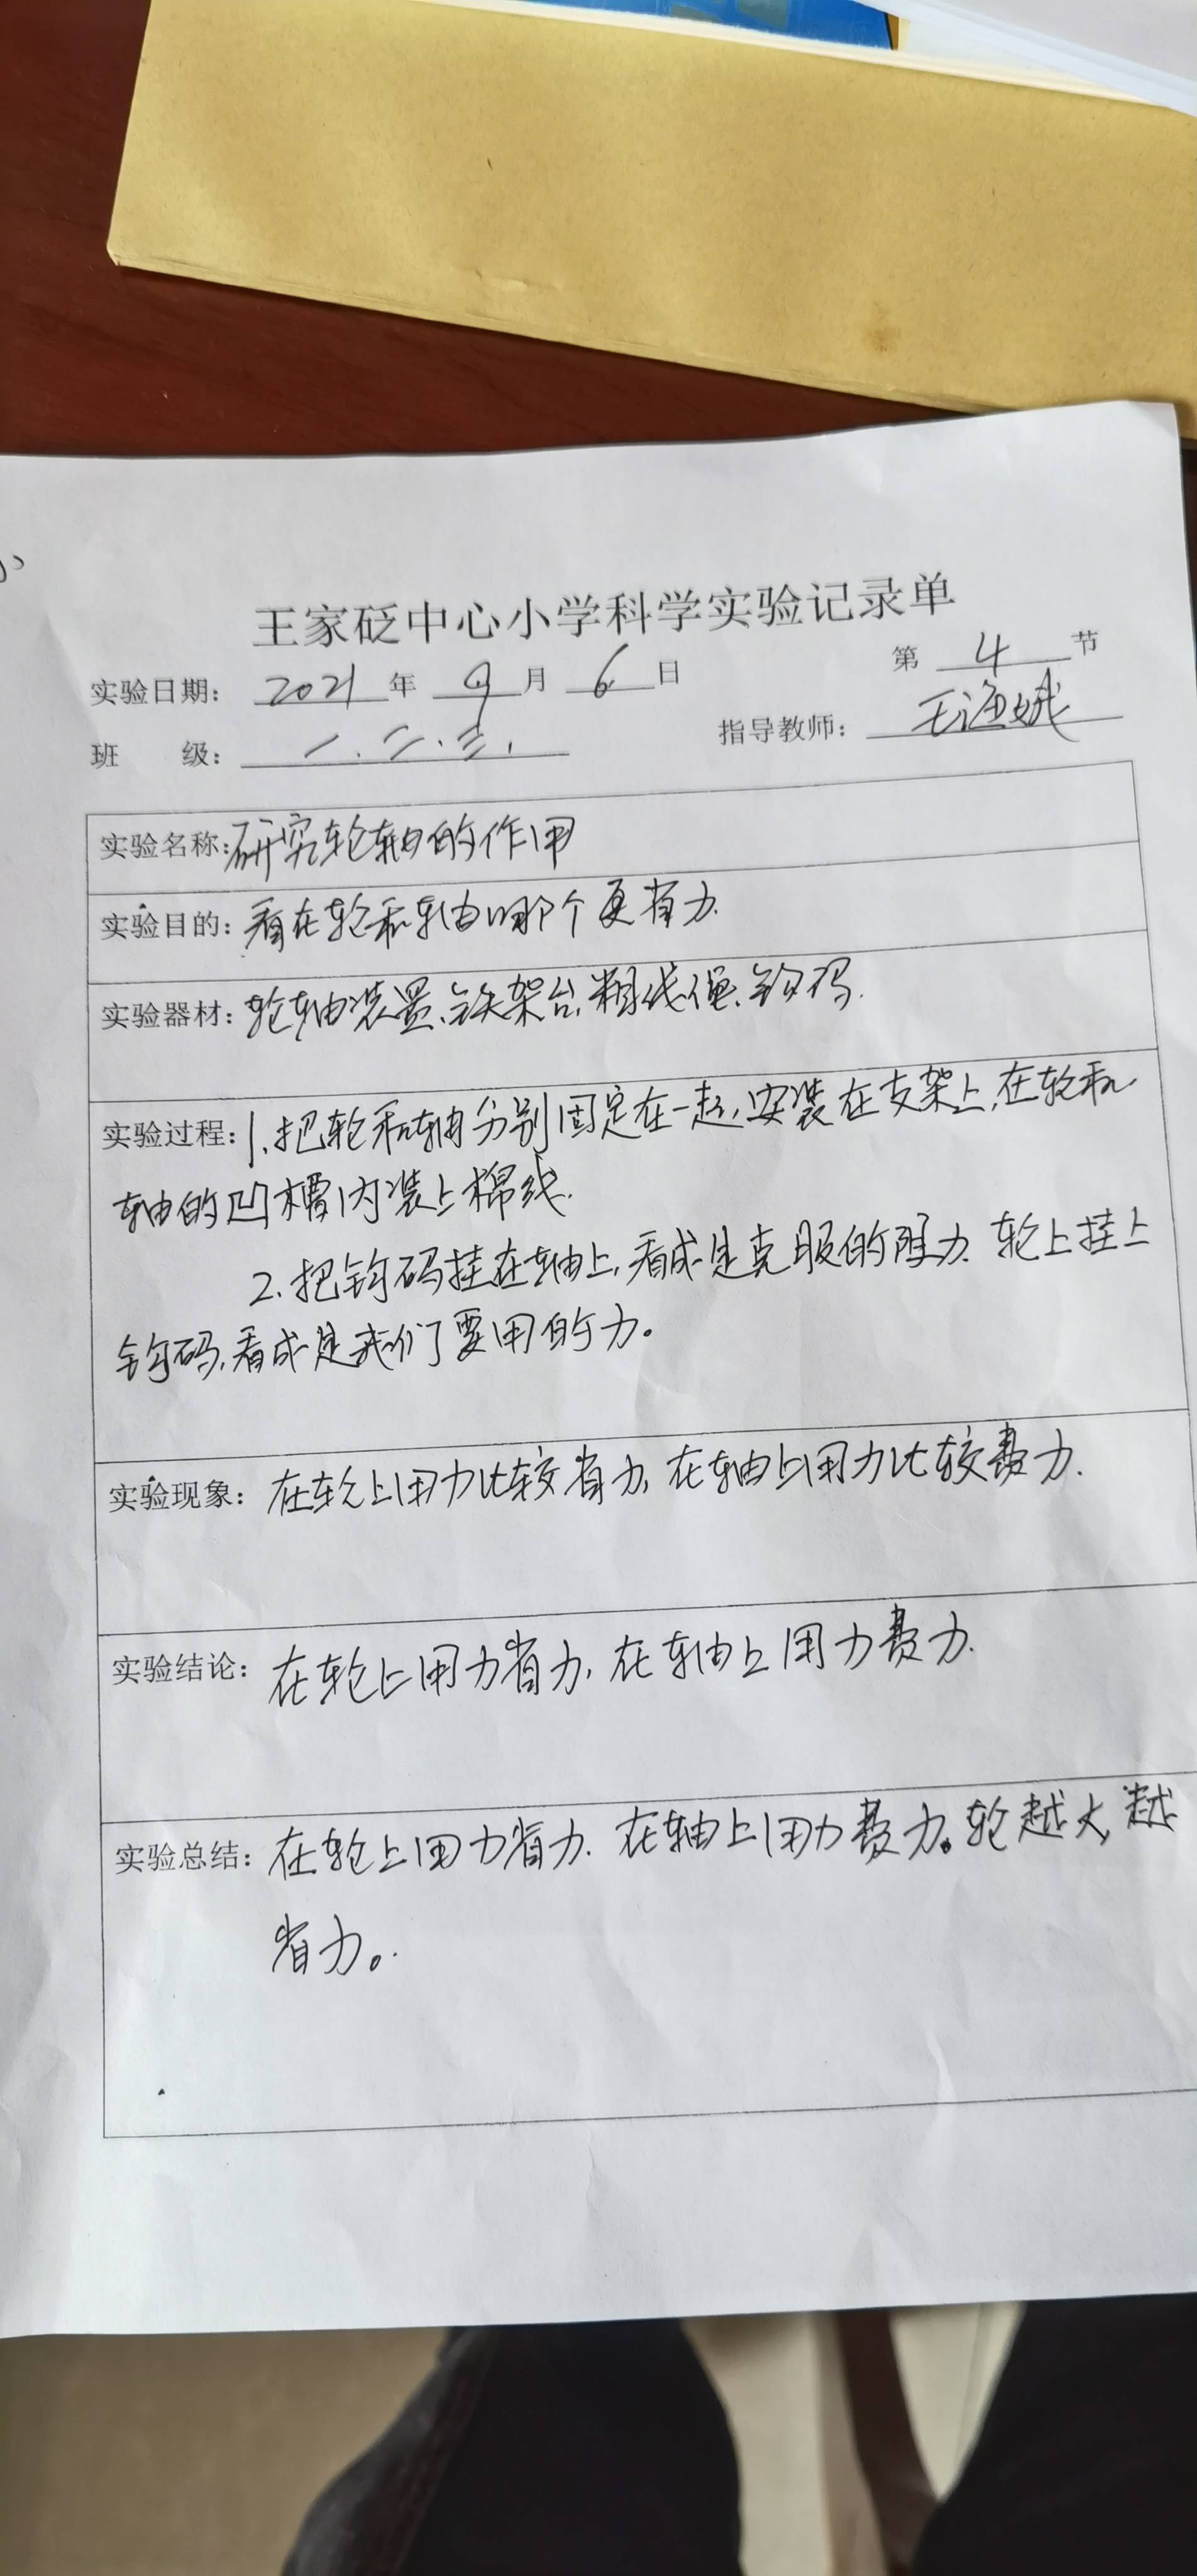 王家砭中心小学科学实验记录单
第 4 节
实验日期: 2021 年 9 月 6 日
指导教师: 王海娥
班 级: 一.二.三.
实验名称:研究轮轴的作用
实验目的:看在轮和轴哪个更省力.
实验器材:轮轴装置、铁架台、粗线绳、钩码.
实验过程:1.把轮和轴分别固定在一起,安装在支架上,在轮和
轴的凹槽内装上棉线.
2.把钩码挂在轴上,看成是克服的阻力.轮上挂上
钩码,看成是我们要用的力。
实验现象:在轮上用力比较省力,在轴上用力比较费力.
实验结论:在轮上用力省力,在轴上用力费力.
实验总结:在轮上用力省力.在轴上用力费力。轮越大,越
省力。